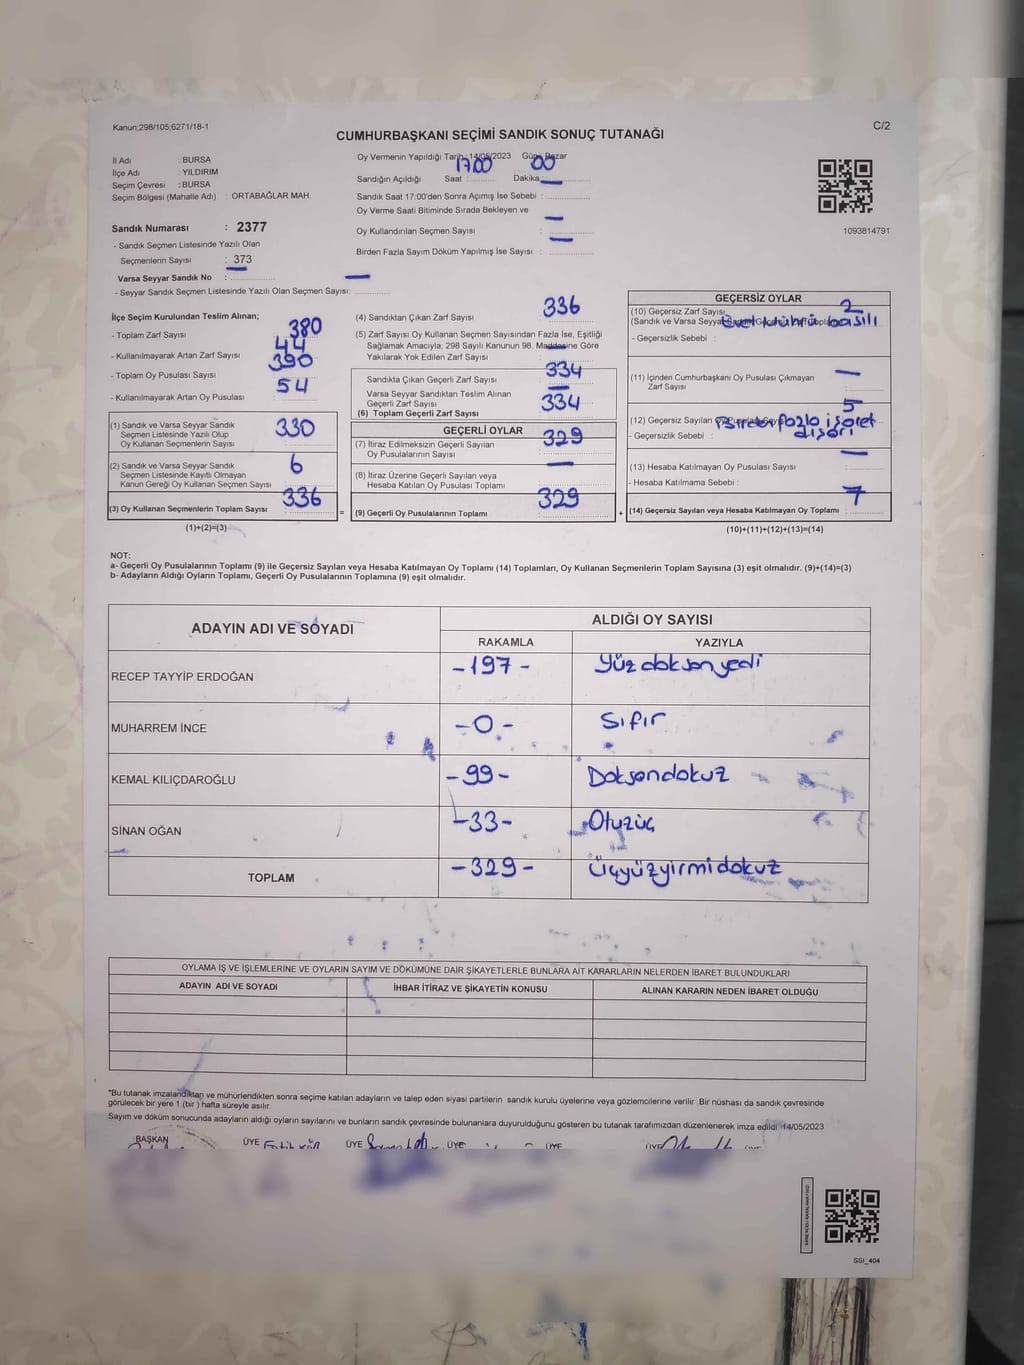 Kanun;298/105;6271/18-1
C/2
CUMHURBAŞKANI SEÇİMİ SANDIK SONUÇ TUTANAĞI
İl Adı : BURSA
İlçe Adı : YILDIRIM
Seçim Çevresi : BURSA
Seçim Bölgesi (Mahalle Adı) : ORTABAĞLAR MAH.
Sandık Numarası : 2377
- Sandık Seçmen Listesinde Yazılı Olan
Seçmenlerin Sayısı : 373
Varsa Seyyar Sandık No : —
- Seyyar Sandık Seçmen Listesinde Yazılı Olan Seçmen Sayısı: —
Oy Vermenin Yapıldığı Tarih: 14/05/2023 Günü: Pazar
Sandığın Açıldığı Saat : 17.00 Dakika : 00
Sandık Saat 17:00'den Sonra Açımış İse Sebebi : —
Oy Verme Saati Bitiminde Sırada Bekleyen ve
Oy Kullandırılan Seçmen Sayısı : —
Birden Fazla Sayım Döküm Yapılmış İse Sayısı : —
1093814791
İlçe Seçim Kurulundan Teslim Alınan;
- Toplam Zarf Sayısı 380
- Kullanılmayarak Artan Zarf Sayısı 44
- Toplam Oy Pusulası Sayısı 390
- Kullanılmayarak Artan Oy Pusulası 54
(1) Sandık ve Varsa Seyyar Sandık
Seçmen Listesinde Yazılı Olup
Oy Kullanan Seçmenlerin Sayısı 330
(2) Sandık ve Varsa Seyyar Sandık
Seçmen Listesinde Kayıtlı Olmayan
Kanun Gereği Oy Kullanan Seçmen Sayısı 6
(3) Oy Kullanan Seçmenlerin Toplam Sayısı 336
(1)+(2)=(3)
(4) Sandıktan Çıkan Zarf Sayısı 336
(5) Zarf Sayısı Oy Kullanan Seçmen Sayısından Fazla İse, Eşitliği
Sağlamak Amacıyla; 298 Sayılı Kanunun 98. Maddesine Göre
Yakılarak Yok Edilen Zarf Sayısı : —
Sandıkta Çıkan Geçerli Zarf Sayısı 334
Varsa Seyyar Sandıktan Teslim Alınan
Geçerli Zarf Sayısı —
(6) Toplam Geçerli Zarf Sayısı 334
GEÇERLİ OYLAR
(7) İtiraz Edilmeksizin Geçerli Sayılan
Oy Pusulasının Sayısı 329
(8) İtiraz Üzerine Geçerli Sayılan veya
Hesaba Katılan Oy Pusulası Toplamı —
= (9) Geçerli Oy Pusulalarının Toplamı 329
GEÇERSİZ OYLAR
(10) Geçersiz Zarf Sayısı 2
(Sandık ve Varsa Seyyar
- Geçersizlik Sebebi : mührü basılı
(11) İçinden Cumhurbaşkanı Oy Pusulası Çıkmayan
Zarf Sayısı —
(12) Geçersiz Sayılan Oy Pusulası Sayısı 5
- Geçersizlik Sebebi : Birden fazla işaret
dışarı
(13) Hesaba Katılmayan Oy Pusulası Sayısı —
- Hesaba Katılmama Sebebi :
+ (14) Geçersiz Sayılan veya Hesaba Katılmayan Oy Toplamı 7
(10)+(11)+(12)+(13)=(14)
NOT:
a- Geçerli Oy Pusulalarının Toplamı (9) ile Geçersiz Sayılan veya Hesaba Katılmayan Oy Toplamı (14) Toplamları, Oy Kullanan Seçmenlerin Toplam Sayısına (3) eşit olmalıdır. (9)+(14)=(3)
b- Adayların Aldığı Oyların Toplamı, Geçerli Oy Pusulalarının Toplamına (9) eşit olmalıdır.
ADAYIN ADI VE SOYADI ALDIĞI OY SAYISI
RAKAMLA YAZIYLA
RECEP TAYYİP ERDOĞAN -197- Yüz doksan yedi
MUHARREM İNCE -0- Sıfır
KEMAL KILIÇDAROĞLU -99- Doksandokuz
SİNAN OĞAN -33- Otuzüç
TOPLAM -329- Üçyüzyirmidokuz
OYLAMA İŞ VE İŞLEMLERİNE VE OYLARIN SAYIM VE DÖKÜMÜNE DAİR ŞİKAYETLERLE BUNLARA AİT KARARLARIN NELERDEN İBARET BULUNDUKLARI
ADAYIN ADI VE SOYADI İHBAR İTİRAZ VE ŞİKAYETİN KONUSU ALINAN KARARIN NEDEN İBARET OLDUĞU
*Bu tutanak imzalandıktan ve mühürlendikten sonra seçime katılan adayların ve talep eden siyasi partilerin sandık kurulu üyelerine veya gözlemcilerine verilir .Bir nüshası da sandık çevresinde
görülecek bir yere 1 (bir ) hafta süreyle asılır.
Sayım ve döküm sonucunda adayların aldığı oyların sayılarını ve bunların sandık çevresinde bulunanlara duyurulduğunu gösteren bu tutanak tarafımızdan düzenlenerek imza edildi. 14/05/2023
BAŞKAN ÜYE ÜYE ÜYE ÜYE ÜYE ÜYE
SSI_404